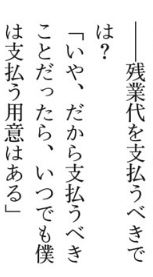 ――残業代を支払うべきで
は？
「いや、だから支払うべき
ことだったら、いつでも僕
は支払う用意はある」